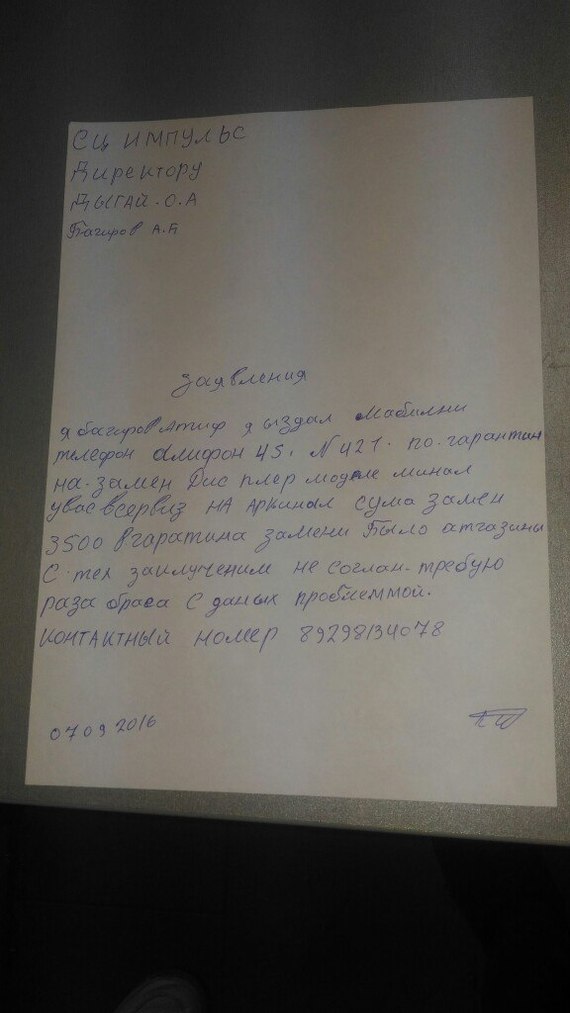 СЦ ИМПУЛЬС
Директору
ДЫГАЙ. О.А
Багиров А.Б
Заявления
я багиров Атиф я ыздал мабилни
телефон алифон 4S. N421. по. гарантии
на. замен Дис плер модле минал
увас всервиз НА Аркинал сума замен
3500 вгаратина замени Было атгазины
С тех заклучением не соглан. требую
раза браса с даных проблеммой.
КОНТАКТНЫЙ номер 89298134078
07 09 2016